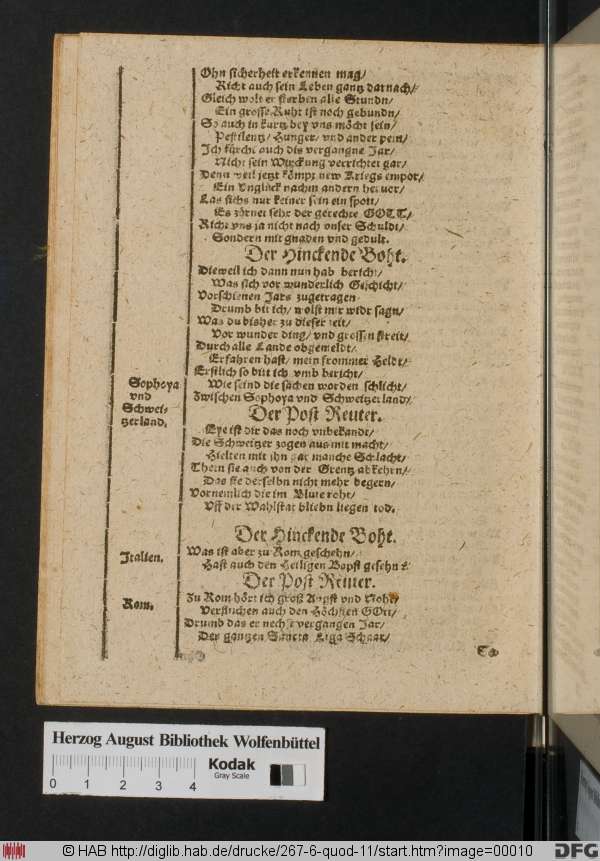 Ohn sicherheit erkennen mag/
Richt auch sein Leben gantz darnach/
Gleich wolt er sterben alle Stundn/
Ein grosse Ruht ist noch gebundn/
So auch in kurtz bey vns möcht sein/
Pestilentz/ Hunger/ vnd ander pein/
Ich fürcht auch dis vergangne Jar/
Nicht sein Wirckung verrichtet gar/
Denn weil jetzt kömpt new Kriegs empor/
Ein Vnglück nachm andern hervor/
Las sichs nur keiner sein ein spott/
Es zörnet sehr der gerechte GOTT/
Richt vns ja nicht nach vnser Schuldt/
Sondern mit gnaden vnd gedult.
Der Hinckende Boht.
Dieweil ich dann nun hab bericht/
Was sich vor wunderlich Geschicht/
Vorschienen Jars zugetragen
Drumb bit ich/ wolst mir widr sagn/
Was du bisher zu dieser zeit/
Vor wunder ding/ vnd grossen streit/
Durch alle Lande obgemeldt/
Erfahren hast/ mein frommer Heldt/
Erstlich so bitt ich vmb bericht/
Wie seind die sachen worden schlicht/
Zwischen Sophoya vnd Schweitzerland/
Sophoya
vnd
Schwei-
tzerland.
Der Post Reuter.
Eye ist dir das noch vnbekandt/
Die Schweitzer zogen aus mit macht/
Hielten mit ihn gar manche Schlacht/
Theten sie auch von der Grentz abkehrn/
Das sie derselbn nicht mehr begern/
Vornemlich die im Blute roht/
Vff der Wahlstat bliebn liegen tod.
Der Hinckende Boht.
Italien.
Was ist aber zu Rom geschehn/
Hast auch den Heiligen Bapst gesehn?
Der Post Reuter.
Rom.
Zu Rom hört ich groß Angst vnd Noht/
Versuchen auch den Höchsten GOtt/
Drumb das er nechst vergangen Jar/
Der gantzen Sancta Liga Schaar/
Herzog August Bibliothek Wolfenbüttel
0 1 2 3 4
Kodak
Gray Scale
© HAB http://diglib.hab.de/drucke/267-6-quod-11/start.htm?image=00010
DFG